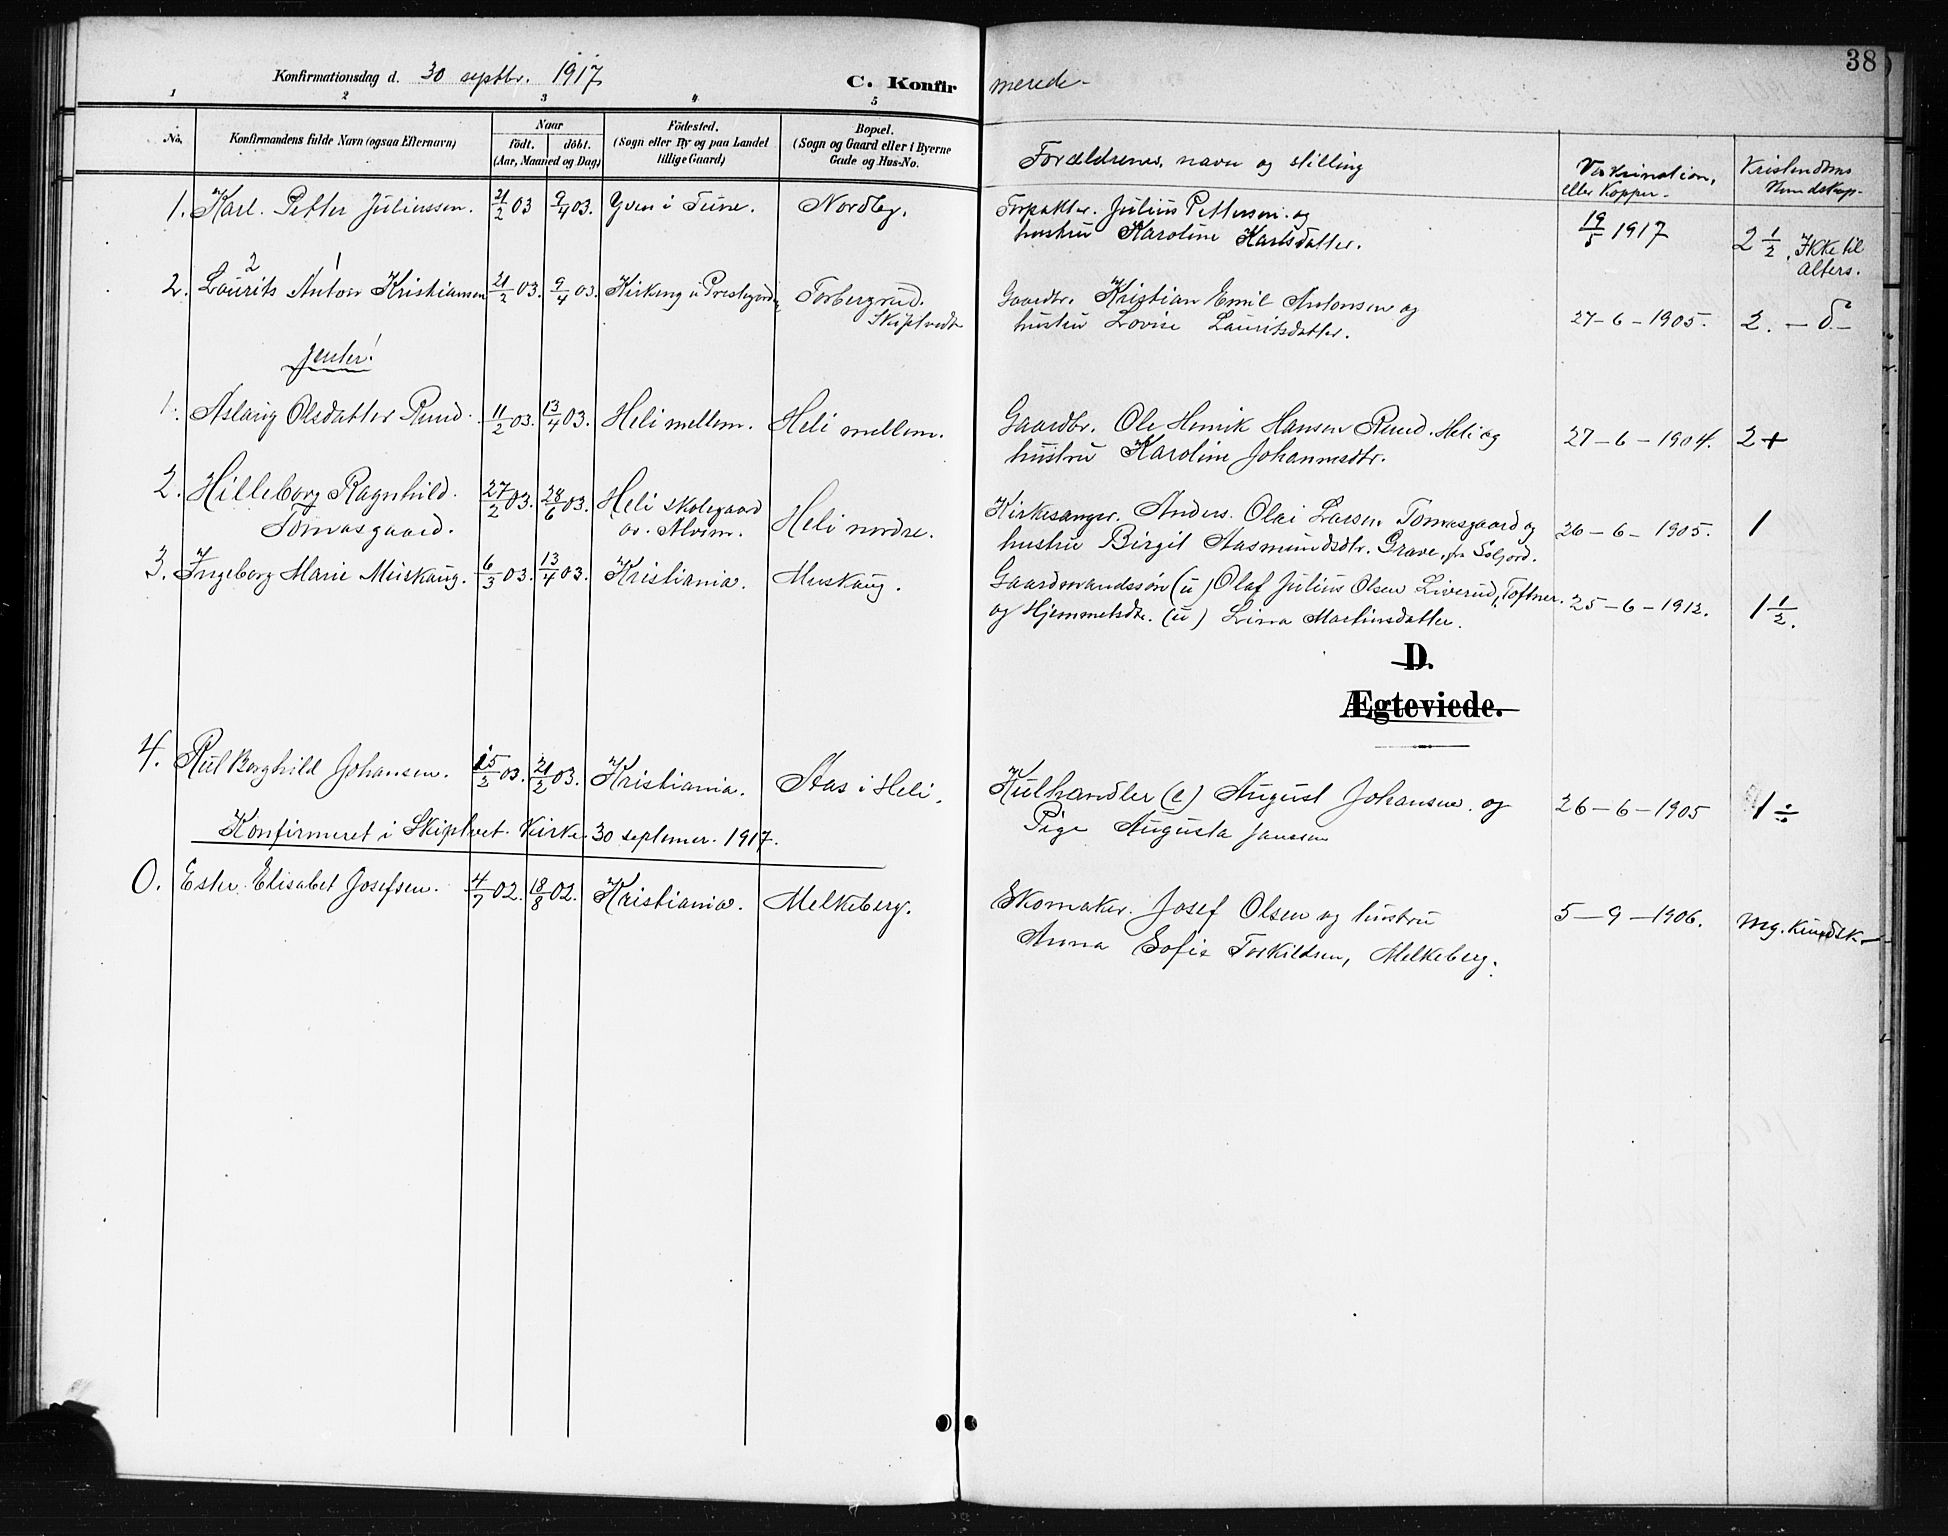 38
Konfirmationsdag d. 30 septbr. 1917
C. Konfir merede
1 2 3 4 5
No. Konfirmandens fulde Navn (ogsaa Efternavn) Naar født. døbt. (Aar, Maaned og Dag) Fødested. (Sogn eller By og paa Landet tillige Gaard) Bopæl. (Sogn og Gaard eller i Byerne Gade og Hus-No.
Forældrenes navn og stilling Vakcination, eller Kopper. Kristendoms Kundskap.
1. Karl. Petter Juliussen. 21/2 03 9/4 03. Yven i Tune. Nordby. Forpakter. Julius Pettersen. og
hustru Karoline Karlsdatter. 19/5 1917 2 1/2. Ikke til
alters.
2 1
2. Laurits Anton Kristiansen 21/2 03. 9/4 03. Kirkeng u. Torbergrud. Gaardbr. Kristian Emil Antonsen og
Skiptvedt hustru Lovise Lauritsdatter. 27-6-1905. 2. - δ -
Jenter!
1. Aslaug Olsdatter Ruud. 11/2 03. 13/4 03. Heli mellem. Heli mellem. Gaardbr. Ole Henrik Hansen Ruud. Heli og
hustru Karoline Johannesdtr. 27-6-1904. 2+
2. Hilleborg Ragnhild. 27/2 03. 28/6 03. Heli skolegaard Heli nordre. Kirkesanger. Anders Olai Larsen Tomasgaard og
Tomasgaard. av. Alvim. hustru Birgit Aasmundsdtr. Grave, 26-6-1905. 1
3. Ingeborg Marie Muskaug. 6/3 03. 13/4 03. Kristiania. Muskaug. Gaardmandssøn (u) Olaf Julius Olsen Liverud, Toftner.
og Hjemmetsdtr. (u) Lina Martinsdatter. 25-6-1912. 1 1/2.
D.
Ægteviede.
4. Rut Borghild Johansen. 15/2 03. 21/2 03. Kristiania. Aas i Heli. Kulhandler (e) August Johansen. og
Pige Augusta Janssen 26-6-1905 1 ÷
Konfirmeret i Skiptvet. Kirke. 30 septemer. 1917.
0. Ester Elisabet Josefsen. 4/7 02. 18/8 02. Kristiania. Melkeberg. Skomaker. Josef Olsen og hustru
Anna Sofie Torkildsen, Melkeberg. 5-9-1906. Mg. Kundsk